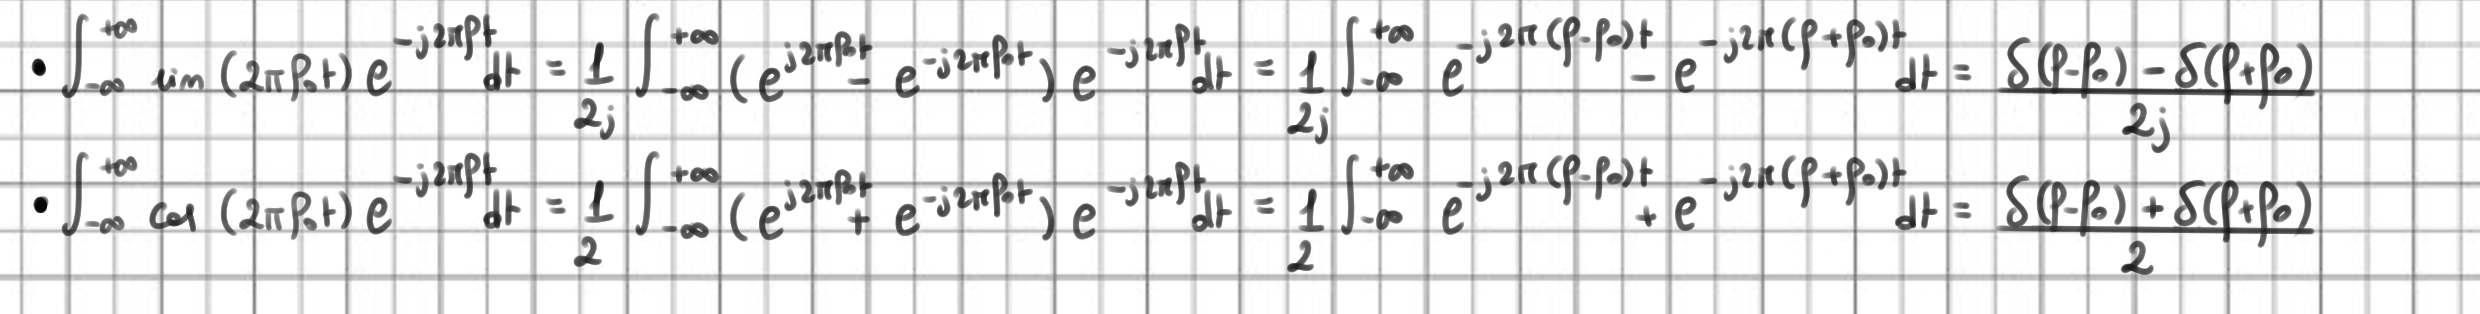 • ∫_{-∞}^{+∞} sin (2πf₀t) e^{-j2πft} dt = 1/2j ∫_{-∞}^{+∞} (e^{j2πf₀t} - e^{-j2πf₀t}) e^{-j2πft} dt = 1/2j ∫_{-∞}^{+∞} e^{-j2π(f-f₀)t} - e^{-j2π(f+f₀)t} dt = (δ(f-f₀) - δ(f+f₀))/2j
• ∫_{-∞}^{+∞} cos (2πf₀t) e^{-j2πft} dt = 1/2 ∫_{-∞}^{+∞} (e^{j2πf₀t} + e^{-j2πf₀t}) e^{-j2πft} dt = 1/2 ∫_{-∞}^{+∞} e^{-j2π(f-f₀)t} + e^{-j2π(f+f₀)t} dt = (δ(f-f₀) + δ(f+f₀))/2